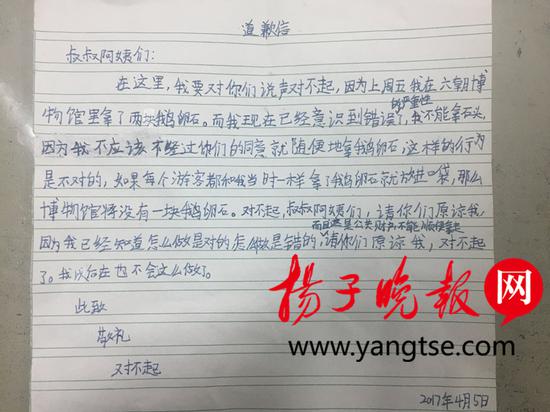 道歉信
叔叔阿姨们：
在这里，我要对你们说声对不起，因为上周五我在六朝博
物馆里拿了两块鹅卵石。而我现在已经意识到错误了，我不能拿石头，
的严重性
因为我不应该不经过你们的同意就随便地拿鹅卵石，这样的行为
是不对的，如果每个游客都和我当时一样拿了鹅卵石就放进口袋，那么
博物馆将没有一块鹅卵石。对不起，叔叔阿姨们，请你们原谅我，
而且这是公共财物，不能随便拿走
因为我已经知道怎么做是对的怎么做是错的，请你们原谅我，对不起
了。我以后在也不会这么做了。
此致
敬礼
对不起
2017年4月5日
扬子晚报网
www.yangtse.com